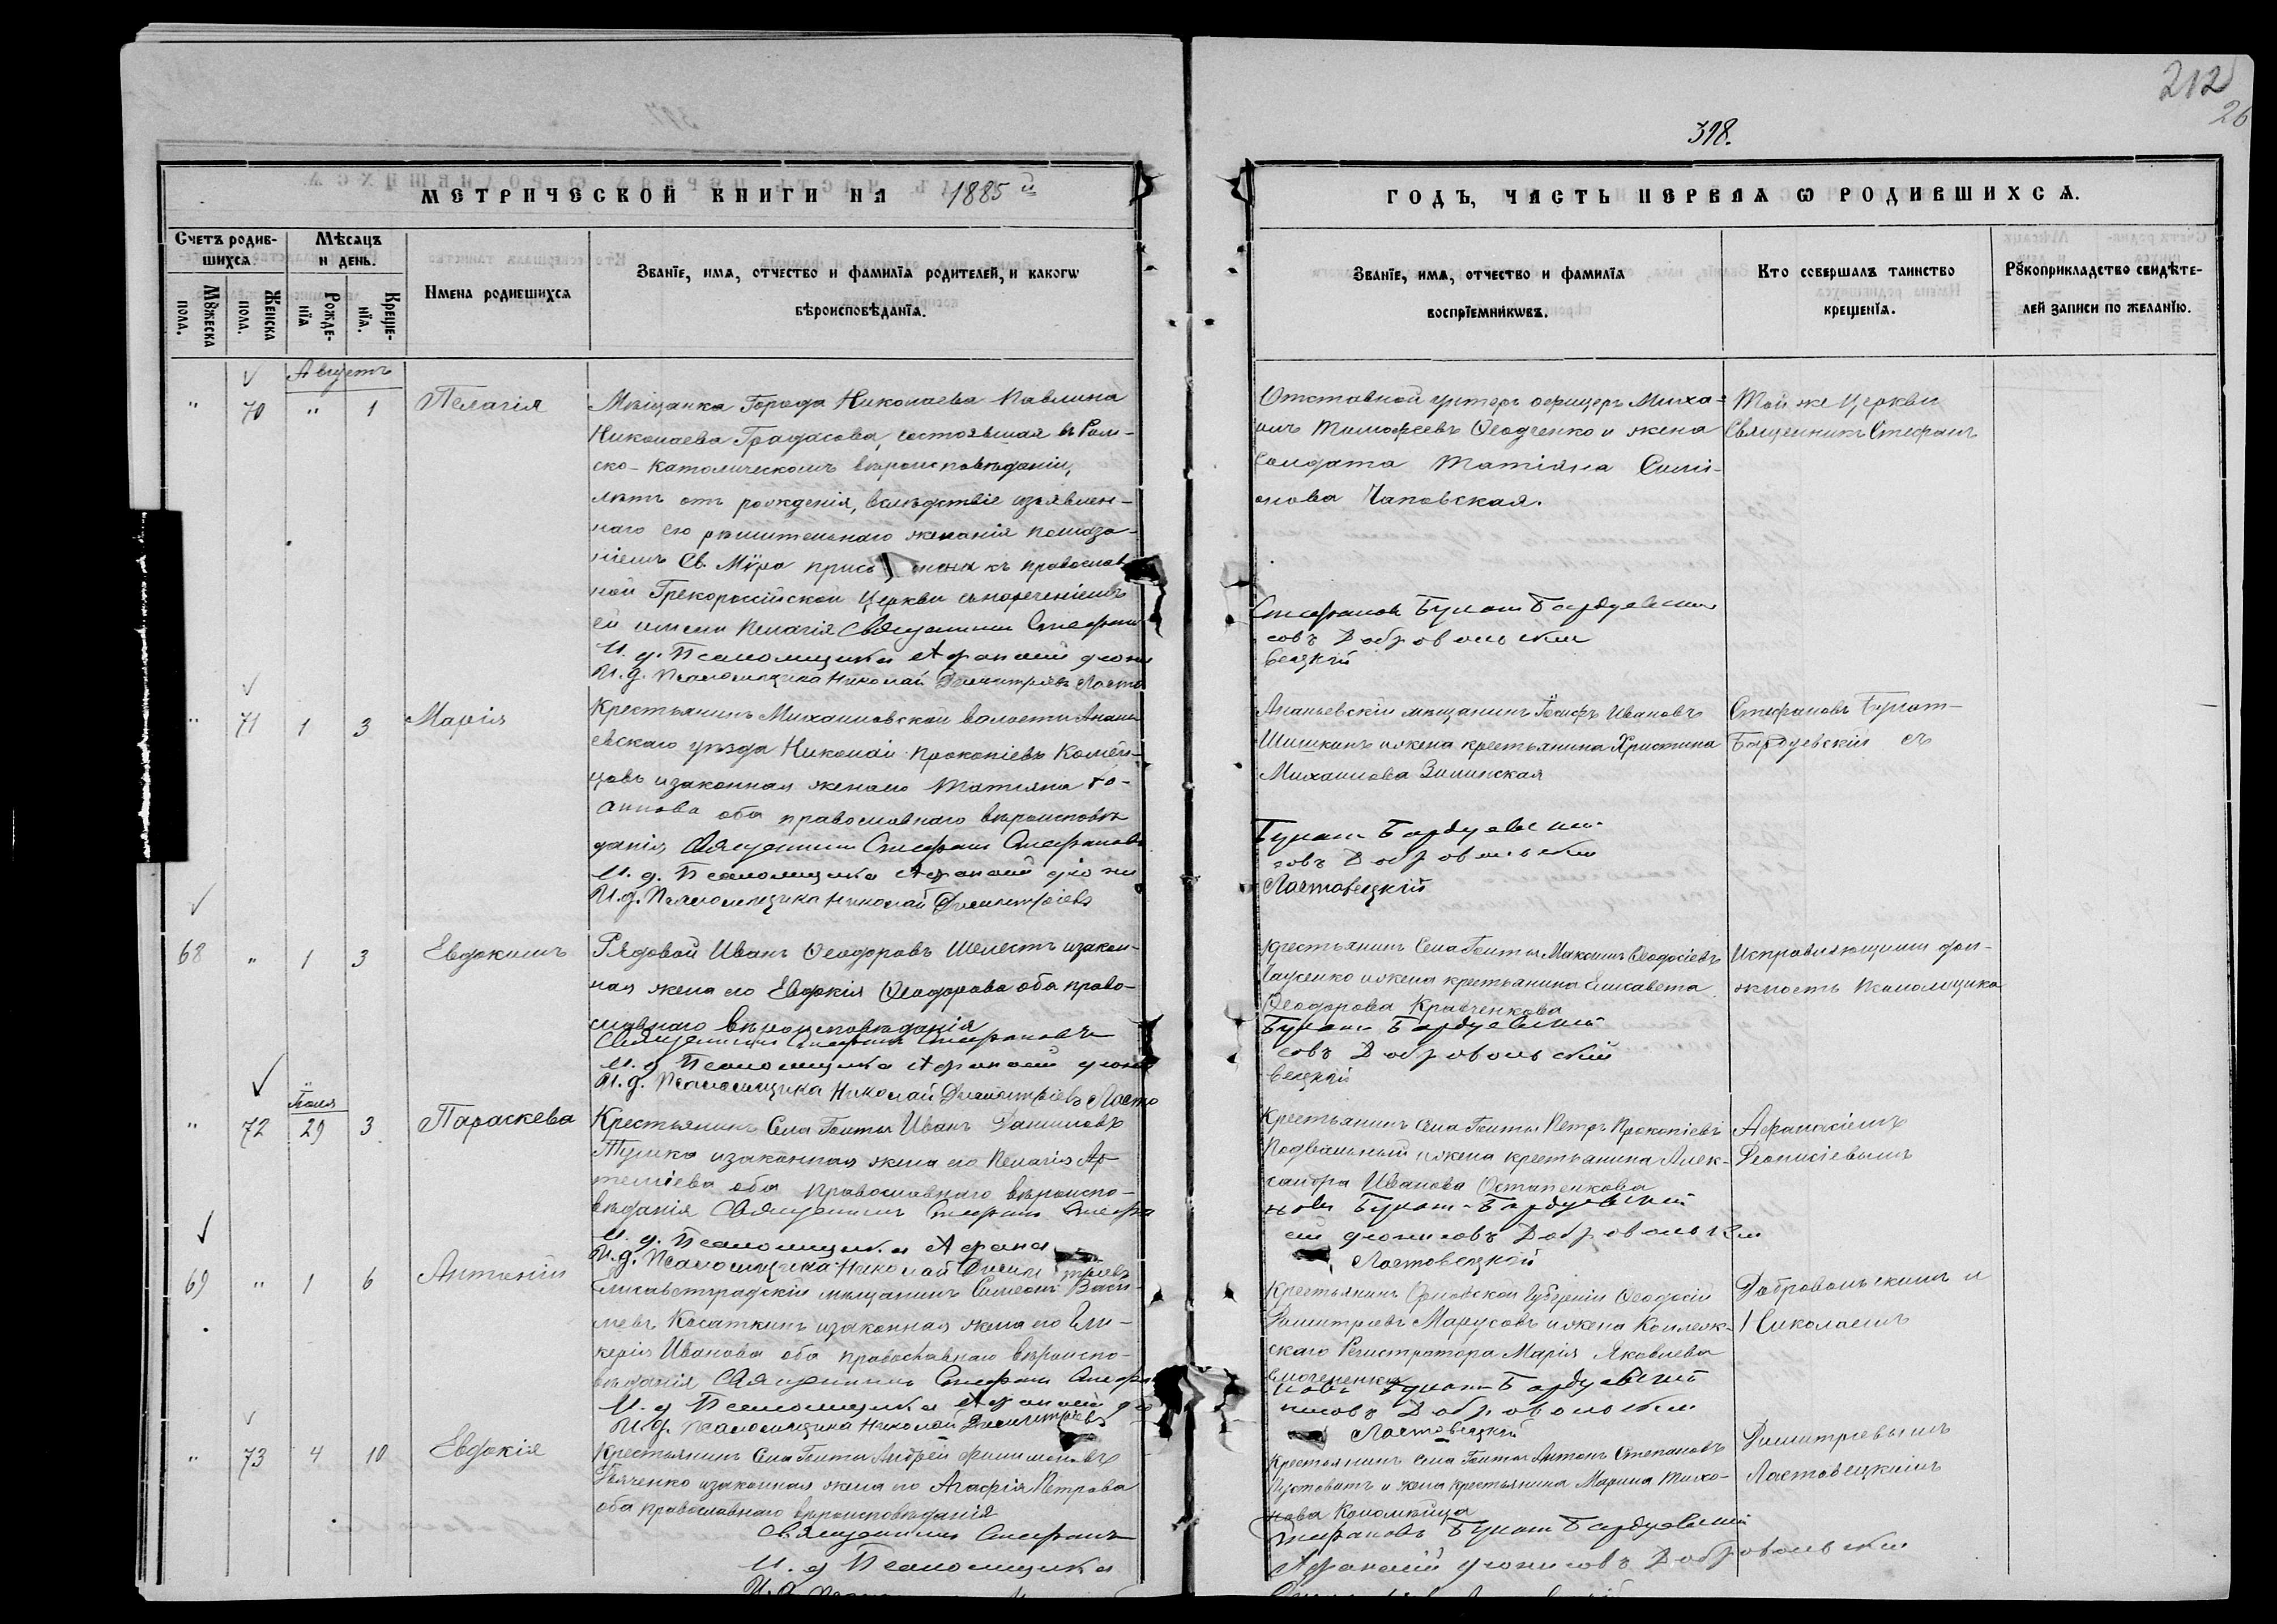 212
26
398.
МЕТРИЧЕСКОЙ КНИГИ НА 1885й
ГОДЪ, ЧАСТЬ ПЕРВАЯ Ѡ РОДИВШИХСѦ.
Счетъ родив-
шихсѧ.
Мѣсяцъ
и день.
Мꙋжеска
пола.
Женска
пола.
Рожде-
нїѧ
Креще-
нїѧ.
Имена родившихсѧ
Званїе, имѧ, отчество и фамилїѧ родителей, и какогѡ
вѣроисповѣданїѧ.
Званїе, имѧ, отчество и фамилїѧ
воспрїемникѡвъ.
Кто совершалъ таинство
крещенїѧ.
Рꙋкоприкладство свидѣте-
лей записи по желанїю.
Августъ
" 70 " 1 Пелагія
Мѣщанка Города Николаева Павлина
Николаева Градасова, состоявшая въ Рим-
ско-Католическомъ вѣроисповѣданіи,
лѣтъ отъ рожденія, вслѣдствіе изъявлен-
наго ею рѣшительнаго желанія помаза-
ніемъ Св. Мѵра присо на къ православ
ной Грекороссійской Церкви съ нареченіемъ
ей имени Пелагія Священникъ Стефанъ
И. д. Псаломщика Афанасій Діони
И. д. Псаломщика Николай Димитріевъ Ласто
Отставной унтеръ офицеръ Миха-
илъ Тимофеевъ Ѳеодченко и жена
солдата Татіяна Сими-
онова Чаповская.
Стефановъ Булат Бардуевский
совъ Добровольский
вецкій
Той же Церкви
Священникъ Стефанъ
" 71 1 3 Марія
Крестьянинъ Михайловской волости Анань
евскаго уѣзда Николай Прокопіевъ
и законная жена его Татіяна Іо-
аннова оба православнаго вѣроисповѣ
данія Священникъ Стефанъ Стефановъ
И. д. Псаломщика Афанасій Діони
И. д. Псаломщика Николай Димитріевъ
Ананьевскій мѣщанинъ Іосифъ Ивановъ
Шишкинъ и жена крестьянина Христина
Михаилова Зилинская
Булат Бардуевский
совъ Добровольский
Ластовецкій
Стефановъ Булат-
Бардуевскій съ
68 " 1 3 Евдокимъ
Рядовой Иванъ Ѳеодоровъ Шелестъ и закон-
ная жена его Евдокія Ѳеодорова оба право-
славнаго вѣроисповѣданія
Священникъ Стефанъ Стефановъ
И. д. Псаломщика Афанасий Діони
И. д. Псаломщика Николай Димитріевъ Ласто
Крестьянинъ Села Гонты Максимъ Ѳеодосіевъ
и жена крестьянина Елисавета
Ѳеодорова Кравченкова
Булат Бардуевский
совъ Добровольский
вецкій
Исправляющими дол-
жность Псаломщика
Іюля
" 72 29 3 Параскева
Крестьянинъ Села Гонты Иванъ Даниловъ
и законная жена его Пелагія Ар-
теміева оба православнаго вѣроиспо-
вѣданія Священникъ Стефанъ Стефа
И. д. Псаломщика Афана
И. д. Псаломщика Николай Димитріевъ
Крестьянинъ Села Гонты Петръ Прокопіевъ
Подвальный и жена крестьянина Алек-
сандра Иванова Остапенкова
новъ Булат-Бардуевский
сий Діонисовъ Добровольский
Ластовецкій
Афанасіемъ
Діонисіевымъ
69 " 1 6 Антоній
Елисаветградскій мѣщанинъ Симеонъ Васи-
льевъ Касаткинъ и законная жена его Гли-
керія Иванова оба православнаго вѣроиспо-
вѣданія Священникъ Стефанъ Стефа
И. д. Псаломщика Афанасій Діо
И. д. Псаломщика Николай Димитріевъ
Крестьянинъ Орловской Губерніи Ѳеодосій
Димитріевъ Марусовъ и жена Коллеж-
скаго Регистратора Марія Яковлева
новъ Булат-Бардуевский
нисовъ Добровольский
Ластовецкій
Добровольскимъ и
Николаемъ
" 73 4 10 Евдокія
Крестьянинъ Села Гонты Андрей Филимоновъ
и законная жена его Агафія Петрова
оба православнаго вѣроисповѣданія
Священникъ Стефанъ
И. д. Псаломщика
Крестьянинъ Села Гонты Антонъ Степановъ
Пустоватъ и жена крестьянина Марина Тихо-
нова
Стефановъ Булат Бардуевский
Афанасий Діонисовъ Добровольский
Димитріевымъ
Ластовецкимъ